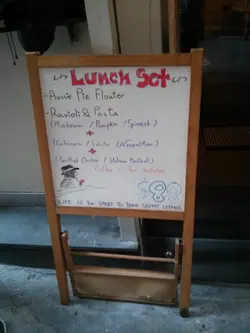 Lunch Set
- Aussie Pie Floater
- Ravioli & Pasta
(Mushroom / Pumpkin / Spinach)
+
(Carbonara / / Neapolitan)
+
(Grilled Chicken / Italian Meatball)
Coffee or Tea included
LIFE IS TOO SHORT TO DRINK SHITTY COFFEE